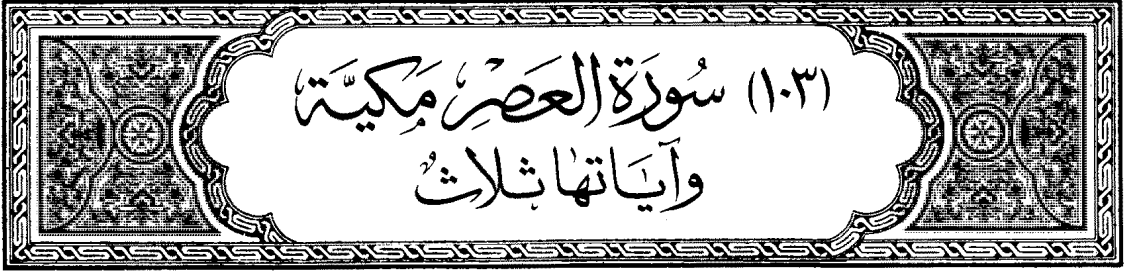 (١٠٣) سُورَة العَصْرِ مَكيَّة
وآيَاتهَا ثلاثٌ